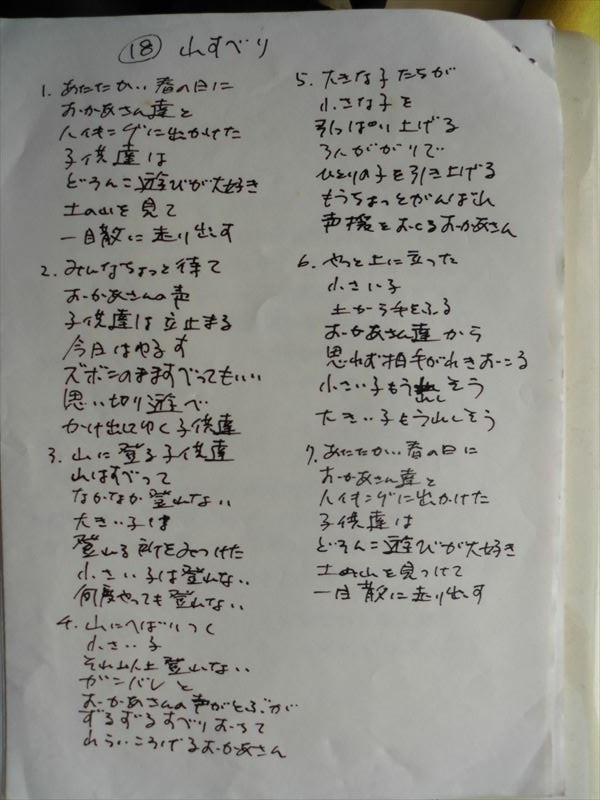 ⑱ 山すべり
1. あたたかい春の日に
おかあさん達と
ハイキングに出かけた
子供達は
どろんこ遊びが大好き
土の山を見て
一目散に走り出す
2. みんなちょっと待て
おかあさんの声
子供達は立止まる
今日はゆるす
ズボンのまますべってもいい
思い切り遊べ
かけ出してゆく子供達
3. 山に登る子供達
山はすべって
なかなか登れない
大きい子は
登れる所をみつけた
小さい子は登れない
何度やっても登れない
4. 山にへばりつく
小さい子
それ以上登れない
ガンバレと
おかあさんの声がとぶが
ずるずるすべりおちて
わらいころげるおかあさん
5. 大きな子たちが
小さな子を
引っぱり上げる
3人がかりで
ひとりの子を引き上げる
もうちょっとがんばれ
声援をおくるおかあさん
6. やっと上に立った
小さい子
上から手をふる
おかあさん達から
思わず拍手がわきおこる
小さい子もうれしそう
大きい子もうれしそう
7. あたたかい春の日に
おかあさん達と
ハイキングに出かけた
子供達は
どろんこ遊びが大好き
土の山を見つけて
一目散に走り出す